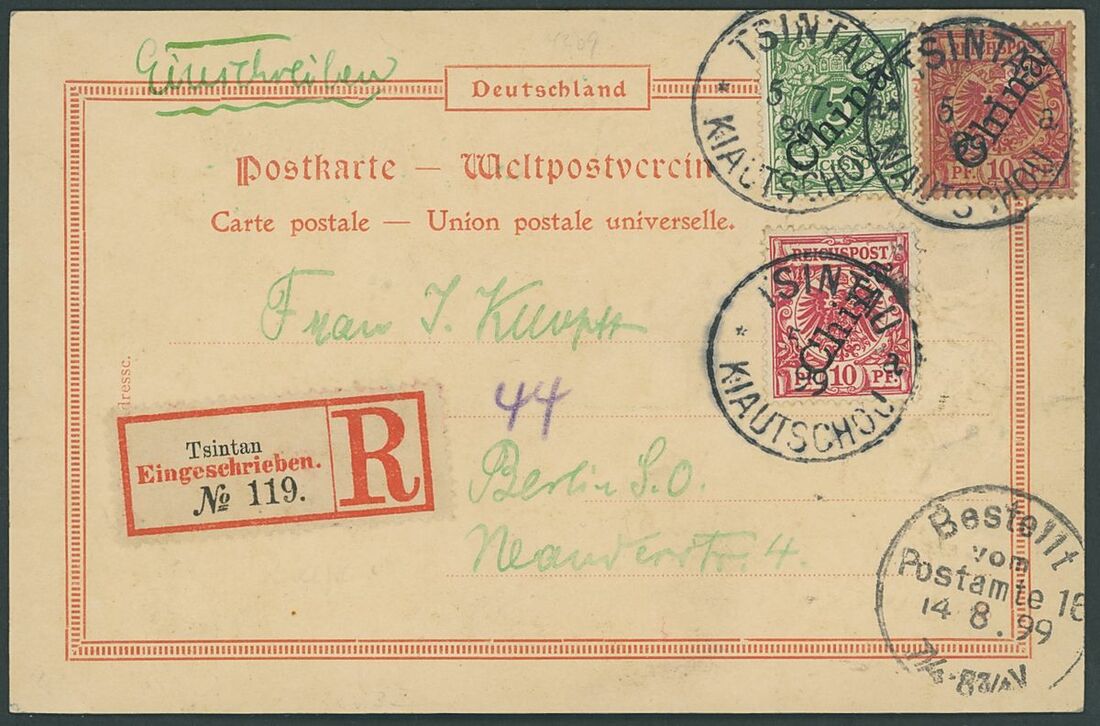 Einschreiben
Deutschland
Postkarte — Weltpostverein
Carte postale — Union postale universelle.
TSINTAU
5 7
99
KIAUTSCHOU
5
China
TSINTAU
5 a
99
KIAUTSCHOU
REICHSPOST
China
PF. 10 PF.
TSINTAU
a
99
KIAUTSCHOU
REICHSPOST
China
PF. 10 PF.
Frau J.
44
Berlin S.O.
Neanderstr. 4.
Tsintan
Eingeschrieben.
№ 119.
R
Bestellt
vom
Postamte 16
14 8.99